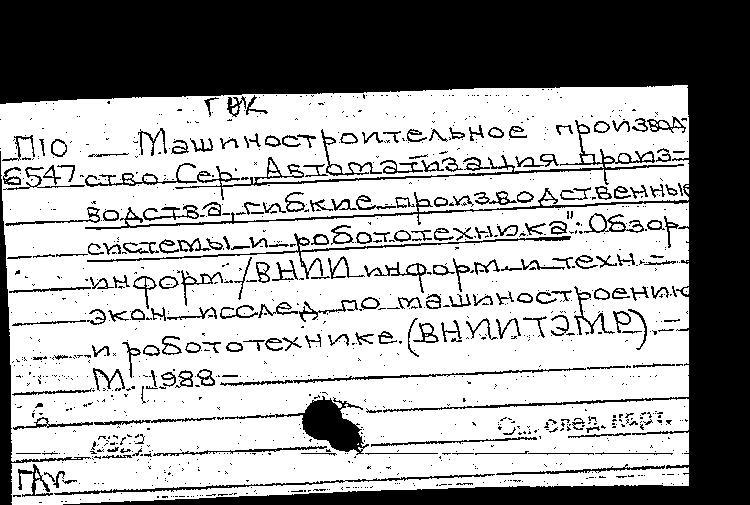 ГФК
П10 Машиностроительное производ
6547 ство. Сер. „Автоматизация произ-
водства, гибкие производственные
системы и робототехника": Обзор.
информ. /ВНИИ информ. и техн.-
экон. исслед. по машиностроению
и робототехнике. (ВНИИТЭМР). -
М., 1988 -
6
См. след. карт.